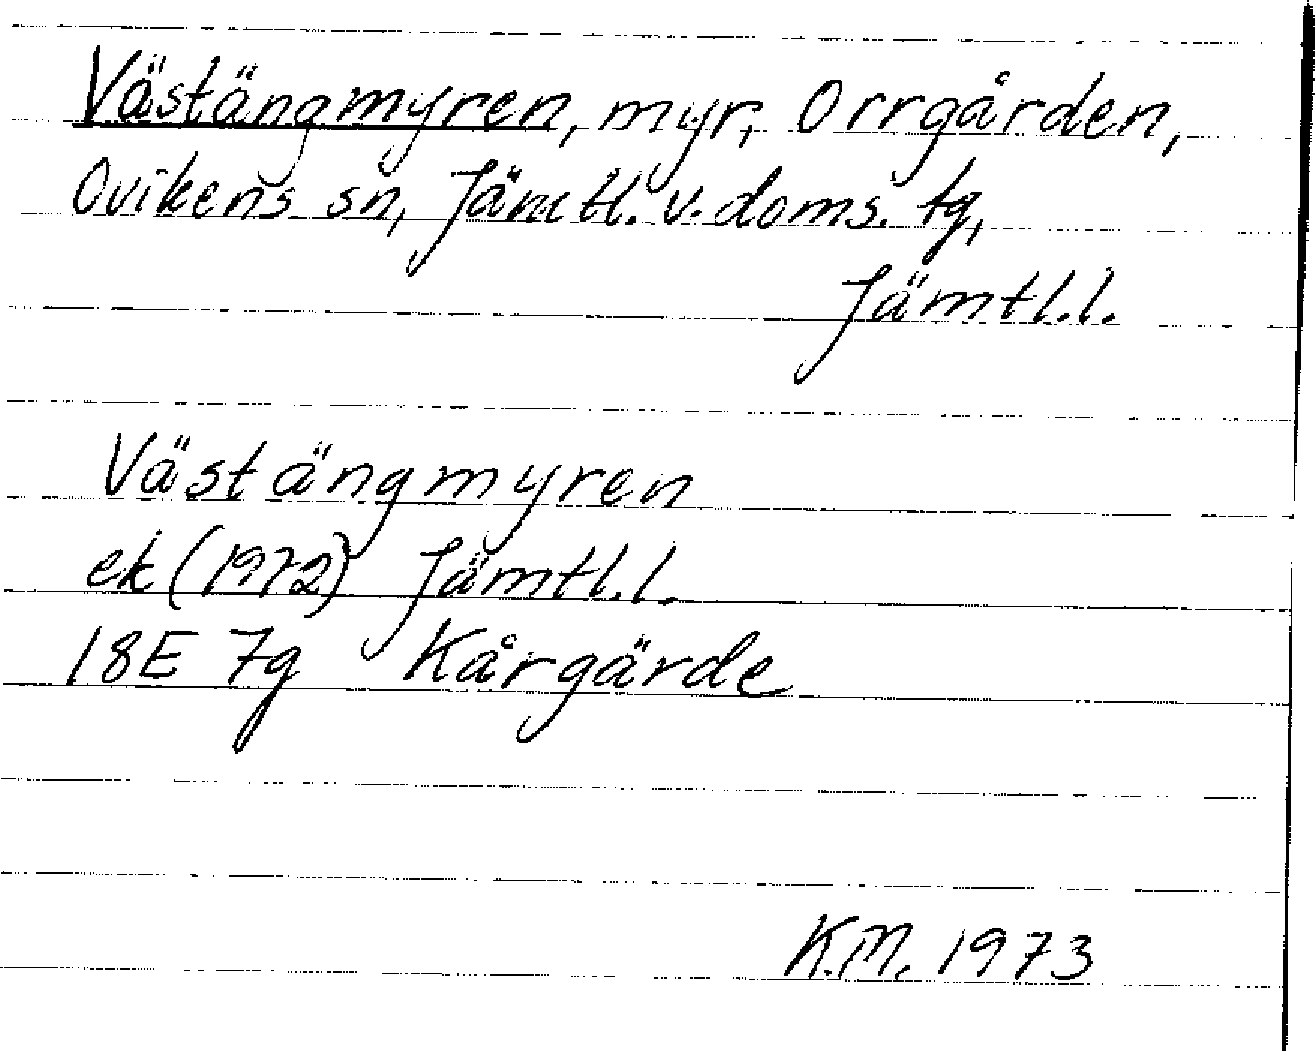 Västängmyren, myr, Orrgården,
Ovikens sn, Jämtl. v. doms. tg,
Jämtl.l.
Västängmyren
ek (1972) Jämtl.l.
18E 7g Kårgärde
K.M. 1973